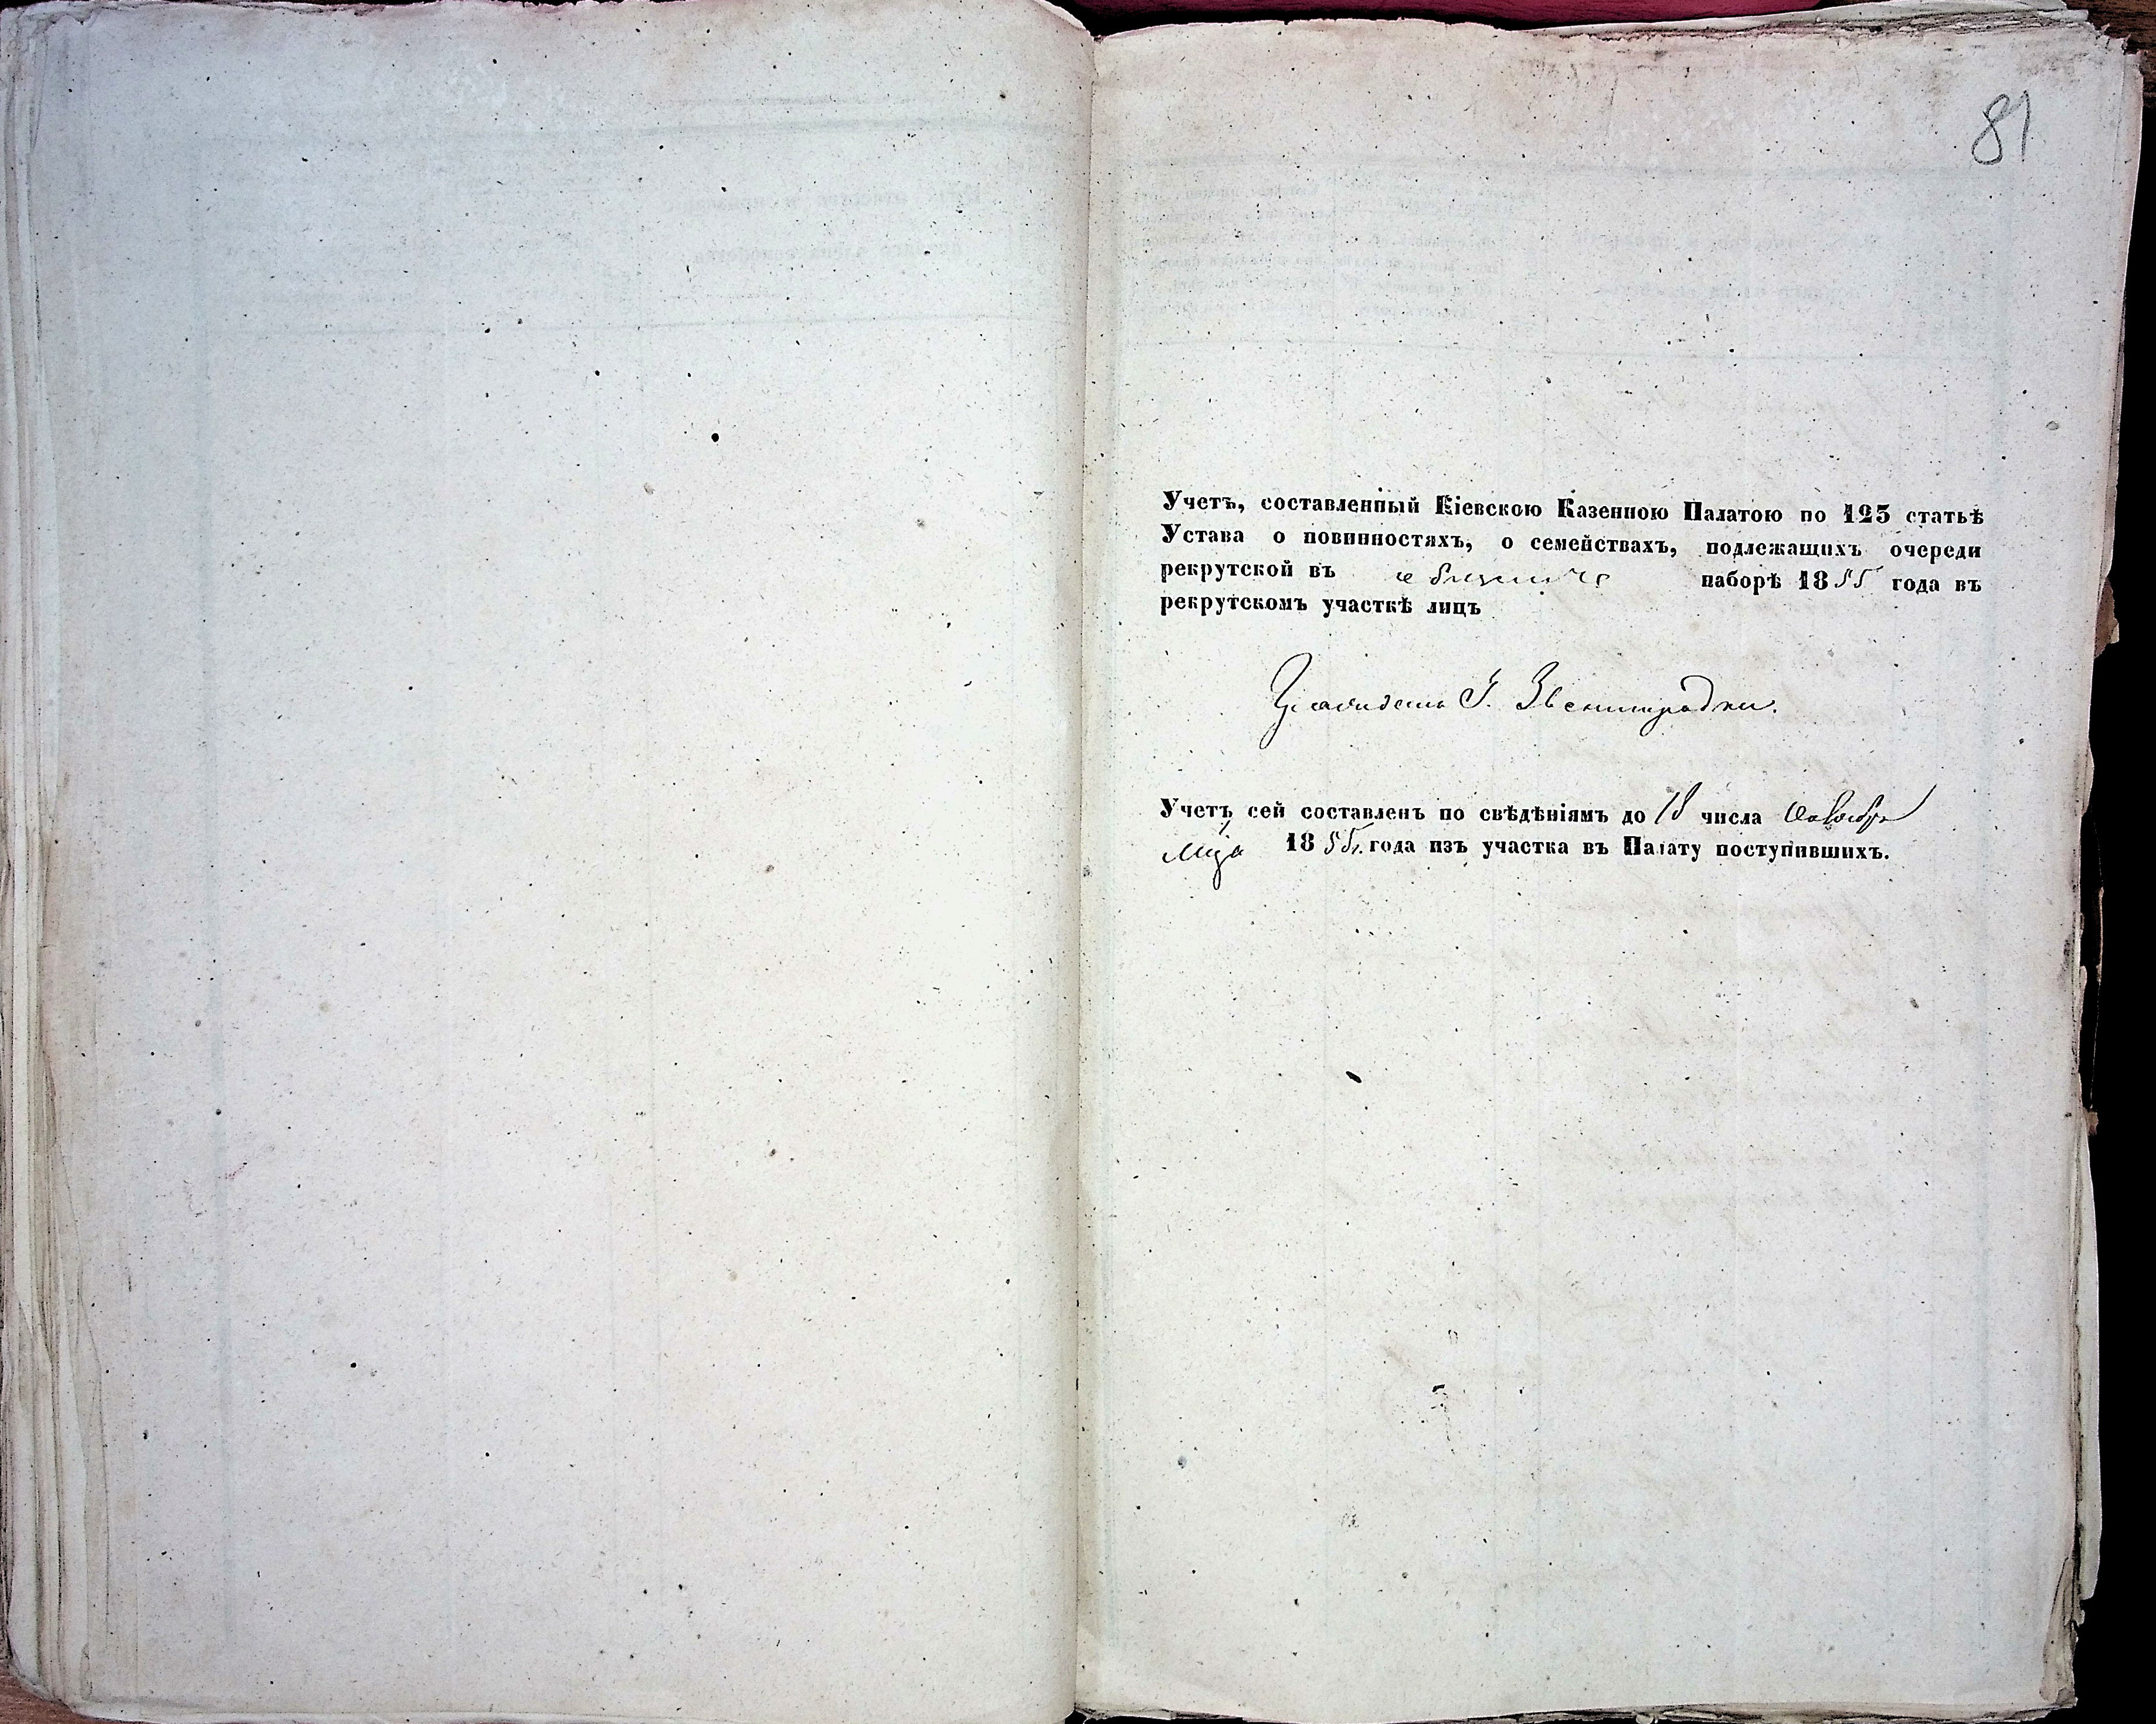 81
Учетъ, составленный Кіевскою Казенною Палатою по 125 статьѣ
Устава о повинностяхъ, о семействахъ, подлежащихъ очереди
рекрутской въ наборѣ 1855 года въ
рекрутскомъ участкѣ лицъ
Г. Звенигородки.
Учетъ сей составленъ по свѣдѣніямъ до 18 числа Октября
Мца 1855 г. года изъ участка въ Палату поступившихъ.